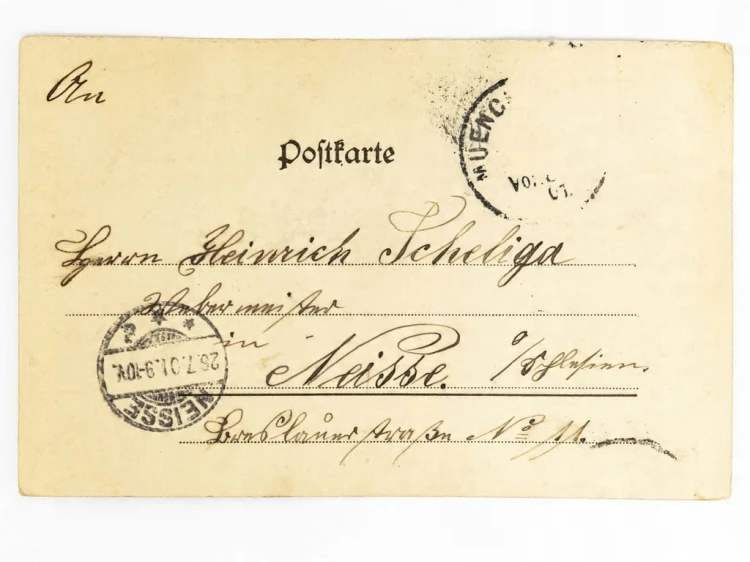 An
Postkarte
MUENC
Herrn Heinrich Scheliga
Webermeister
in
Neisse. o/Schlesien.
Breslauerstraße No 11.
NEISSE
26.7.01.9-10V.